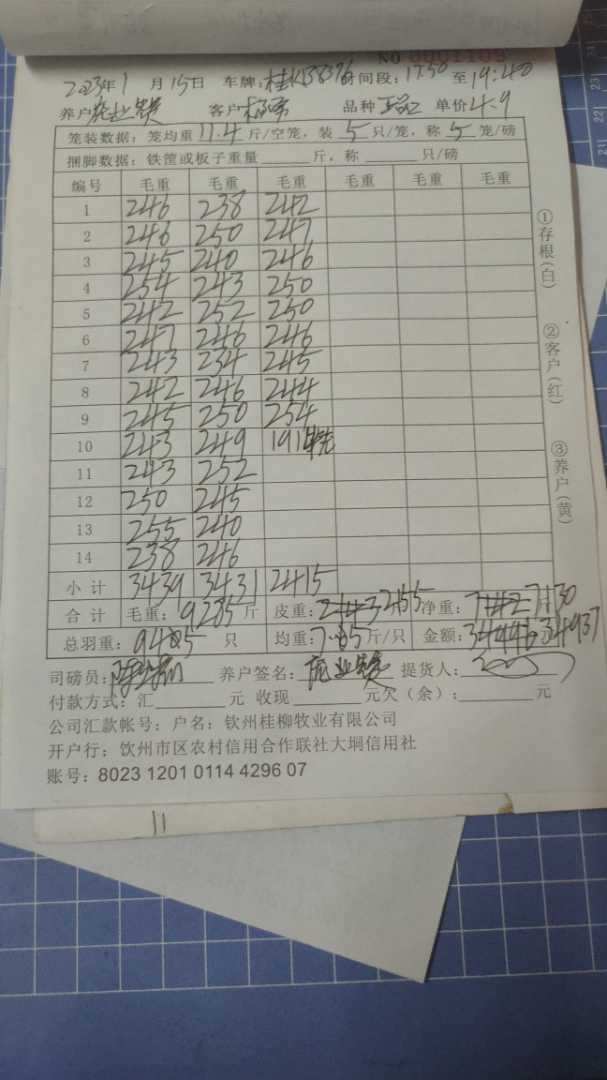 No 0001109
2023年1月15日 车牌:桂KB8376 时间段:17:50至19:40
养户 客户 品种 单价4.9
笼装数据:笼均重11.4斤/空笼,装5只/笼,称5笼/磅
捆脚数据:铁筐或板子重量 斤,称 只/磅
编号 毛重 毛重 毛重 毛重 毛重 毛重
1 246 238 242
2 246 250 247
3 245 240 246
4 254 243 250
5 242 252 250
6 247 246 246
7 243 234 245
8 242 246 244
9 245 250 254
10 243 249 191
11 243 252
12 250 245
13 255 240
14 238 246
小计 3439 3431 2415
合计 毛重:9285斤 皮重:2155 净重:7130
总羽重: 只 均重:7.85斤/只 金额:34937
司磅员: 养户签名: 提货人:
付款方式:汇 元 收现 元欠(余): 元
公司汇款帐号:户名:钦州桂柳牧业有限公司
开户行:饮州市区农村信用合作联社大垌信用社
账号:8023 1201 0114 4296 07
①存根(白)
②客户(红)
③养户(黄)
11